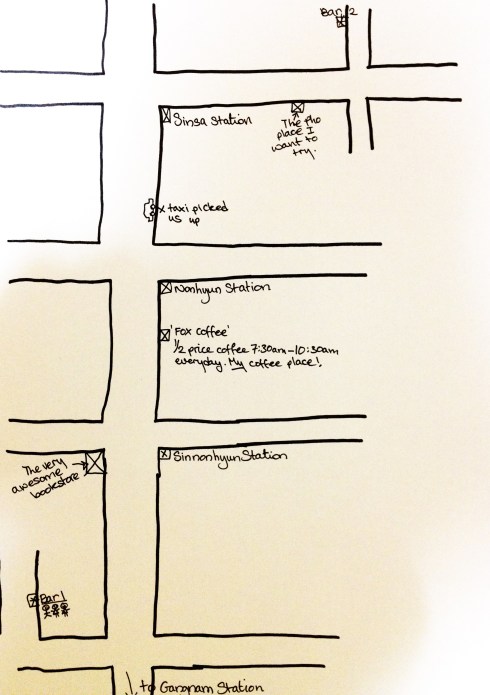 Bar 2
Sinsa Station
The Pho
place I
want to
try.
x taxi picked
us up
Nonhyun Station
'Fox coffee'
1/2 price coffee 7:30am-10:30am
everyday. My coffee place!
The very
awesome
bookstore
Sinnonhyun Station
Bar 1
↓ to Gangnam Station